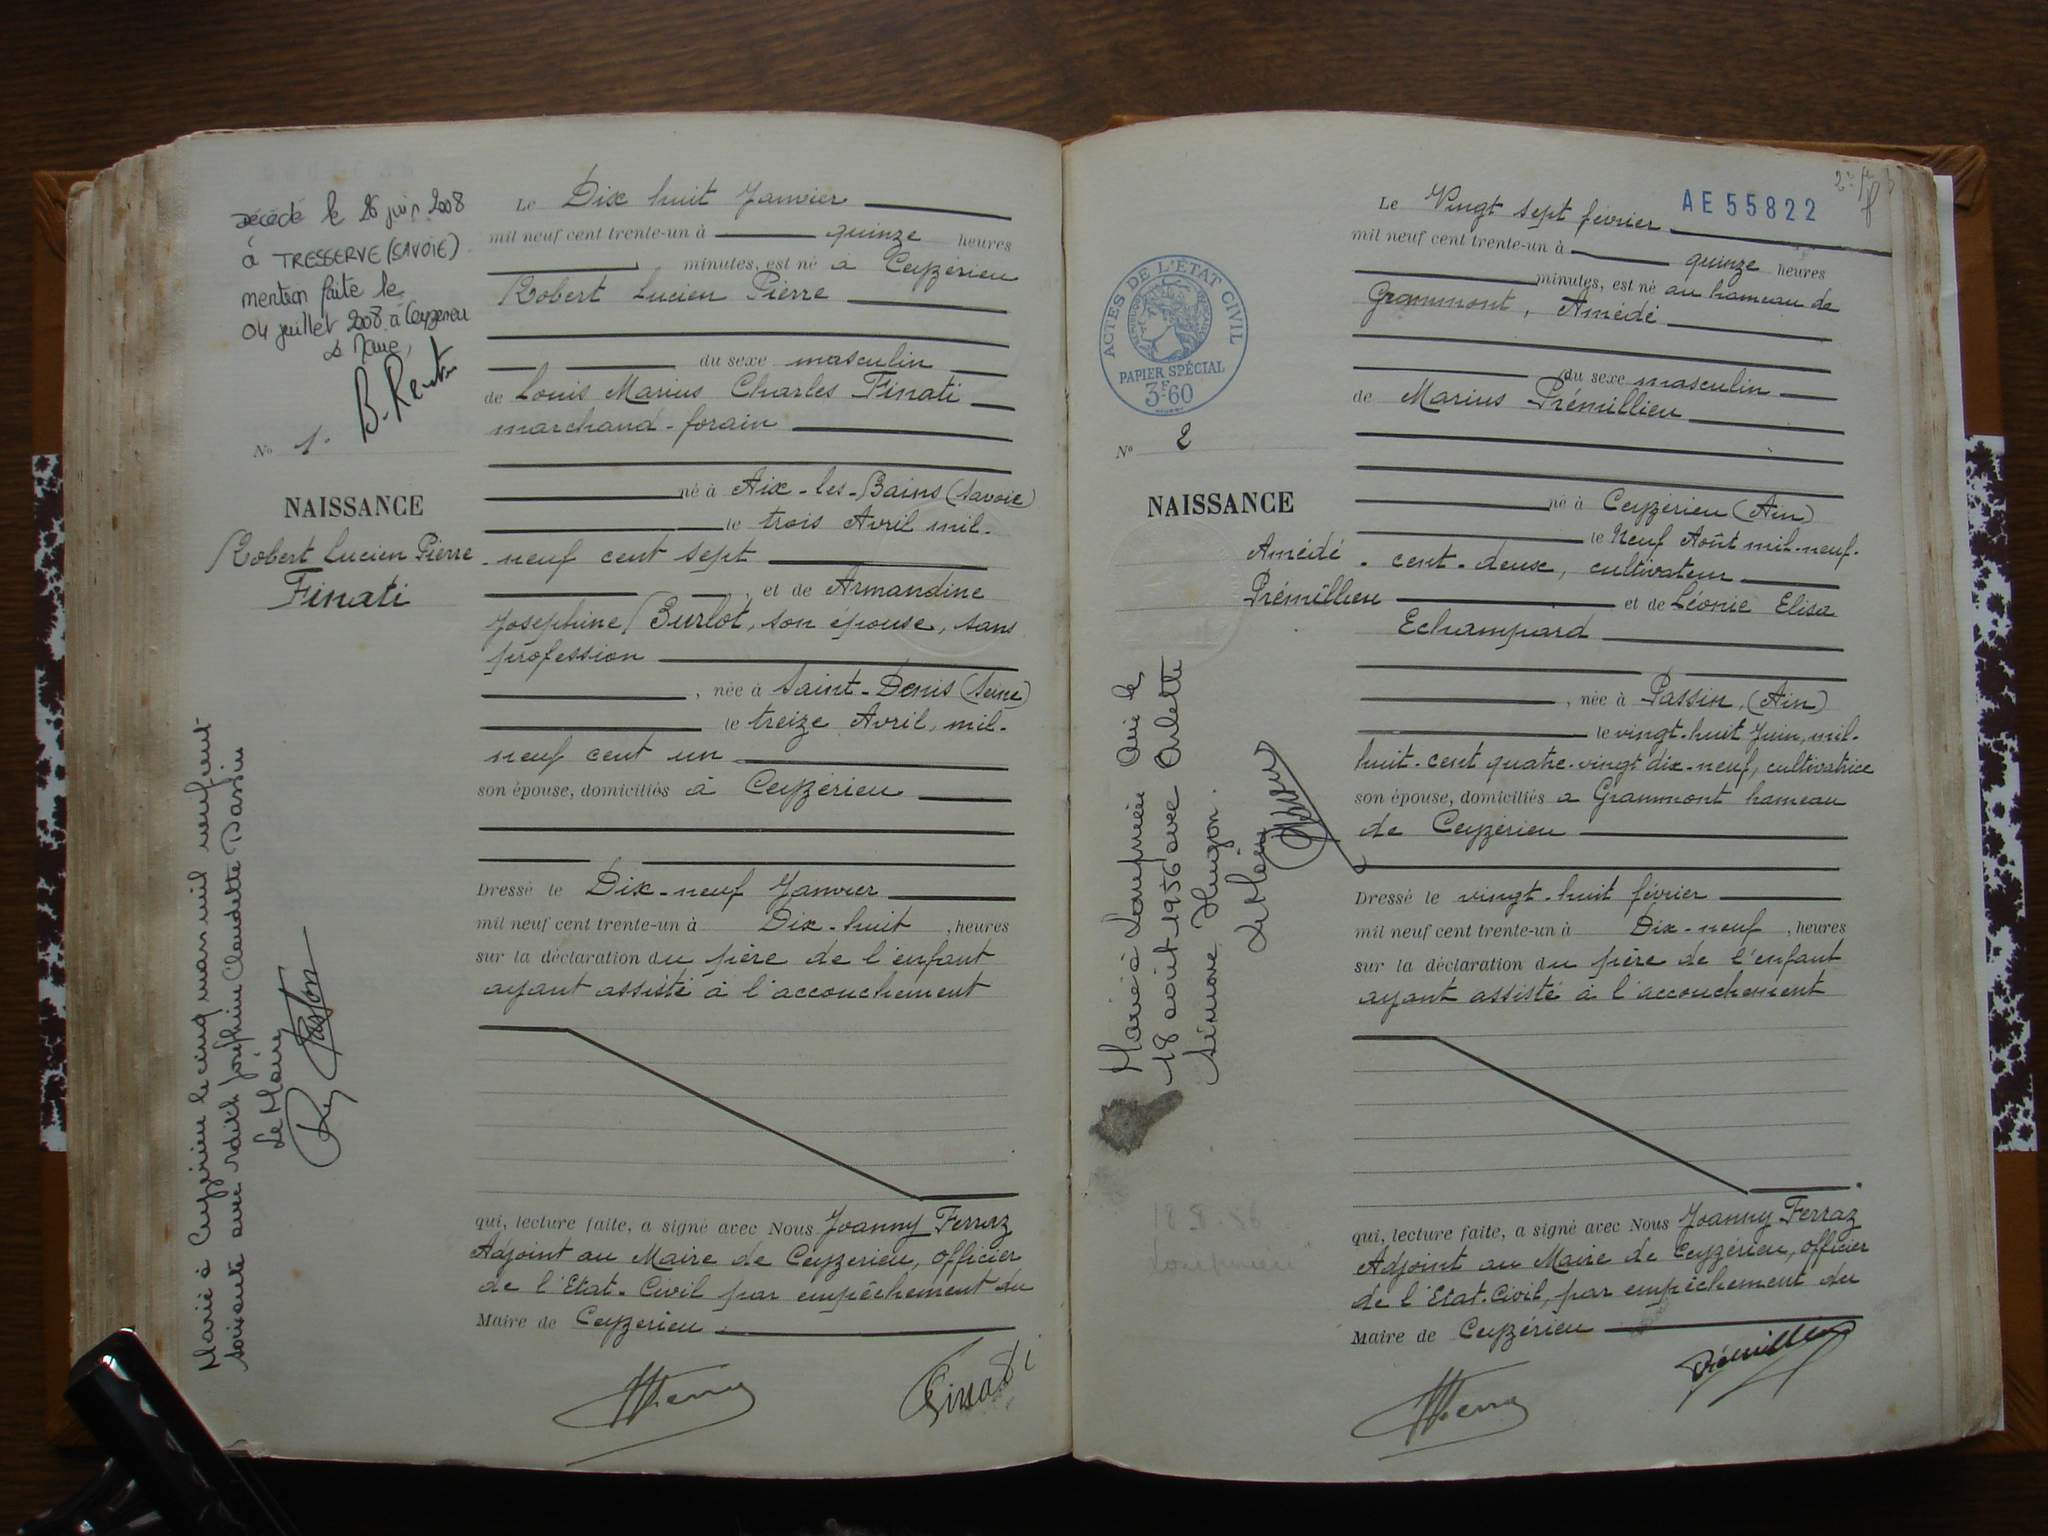 Décédé le 26 juin 2008
à TRESSERVE (SAVOIE)
mention faite le
04 juillet 2008 à Ceyzérieu
Maire,
No 1.
NAISSANCE
Robert Lucien Pierre
Finati
Marié à Ceyzérieu le cinq mars mil neuf cent
soixante avec Edith Joséphine Claudette Dassin
Le Maire
Le Dix huit Janvier
mil neuf cent trente-un à quinze heures
minutes, est né a Ceyzérieu
Robert Lucien Pierre
du sexe masculin
de Louis Marius Charles Finati
marchand-forain
né à Aix-les-Bains (Savoie)
le trois Avril mil-
neuf cent sept
et de Armandine
Joséphine Burlot, son épouse, sans
profession
, née à Saint-Denis (Seine)
le treize Avril, mil-
neuf cent un
son épouse, domiciliés à Ceyzérieu
Dressé le Dix-neuf Janvier
mil neuf cent trente-un à Dix-huit , heures
sur la déclaration du père de l'enfant
ayant assisté à l'accouchement
qui, lecture faite, a signé avec Nous Joanny Ferraz
Adjoint au Maire de Ceyzérieu, Officier
de l'Etat-Civil par empêchement du
Maire de Ceyzérieu
Finati
AE 55822
ACTES DE L'ÉTAT CIVIL
PAPIER SPÉCIAL
3F60
No 2
NAISSANCE
Amédé
Prémillieu
Marié à Lompnieu Ain le
18 août 1956 avec Arlette
Simone Hugon.
Le Maire
Le Vingt sept février
mil neuf cent trente-un à quinze heures
minutes, est né au hameau de
Grammont, Amédé
du sexe masculin
de Marius Prémillieu
né à Ceyzérieu (Ain)
le Neuf Août mil-neuf-
cent-deux, cultivateur
et de Léonie Elisa
Echampard
, née à Passin, (Ain)
le vingt-huit Juin, mil-
huit-cent quatre-vingt dix-neuf, cultivatrice
son épouse, domiciliés a Grammont hameau
de Ceyzérieu
Dressé le vingt-huit février
mil neuf cent trente-un à Dix-neuf , heures
sur la déclaration du père de l'enfant
ayant assisté à l'accouchement
qui, lecture faite, a signé avec Nous Joanny Ferraz
Adjoint au Maire de Ceyzérieu, Officier
de l'Etat-Civil, par empêchement du
Maire de Ceyzérieu